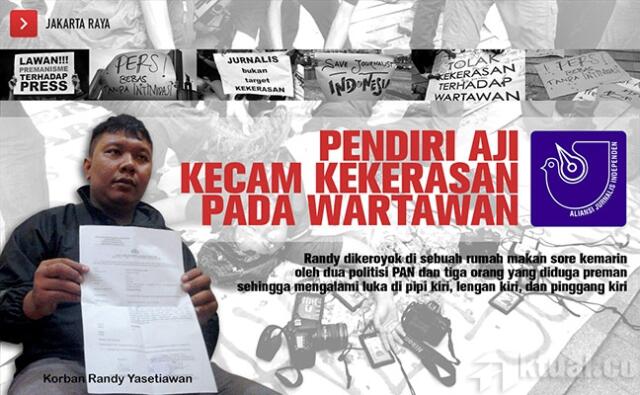 JAKARTA RAYA
LAWAN!!!
PREMANISME
TERHADAP
PRESS
PERS!
BEBAS
TANPA INTIMIDASI
JURNALIS
bukan
target
KEKERASAN
SAVE JOURNALIST
INDONESIA
TOLAK
KEKERASAN
TERHADAP
WARTAWAN
PERS!
BEBAS
TANPA INTIMIDASI
PENDIRI AJI
KECAM KEKERASAN
PADA WARTAWAN
ALIANSI JURNALIS INDEPENDEN
Randy dikeroyok di sebuah rumah makan sore kemarin
oleh dua politisi PAN dan tiga orang yang diduga preman
sehingga mengalami luka di pipi kiri, lengan kiri, dan pinggang kiri
Korban Randy Yasetiawan
ktual.co